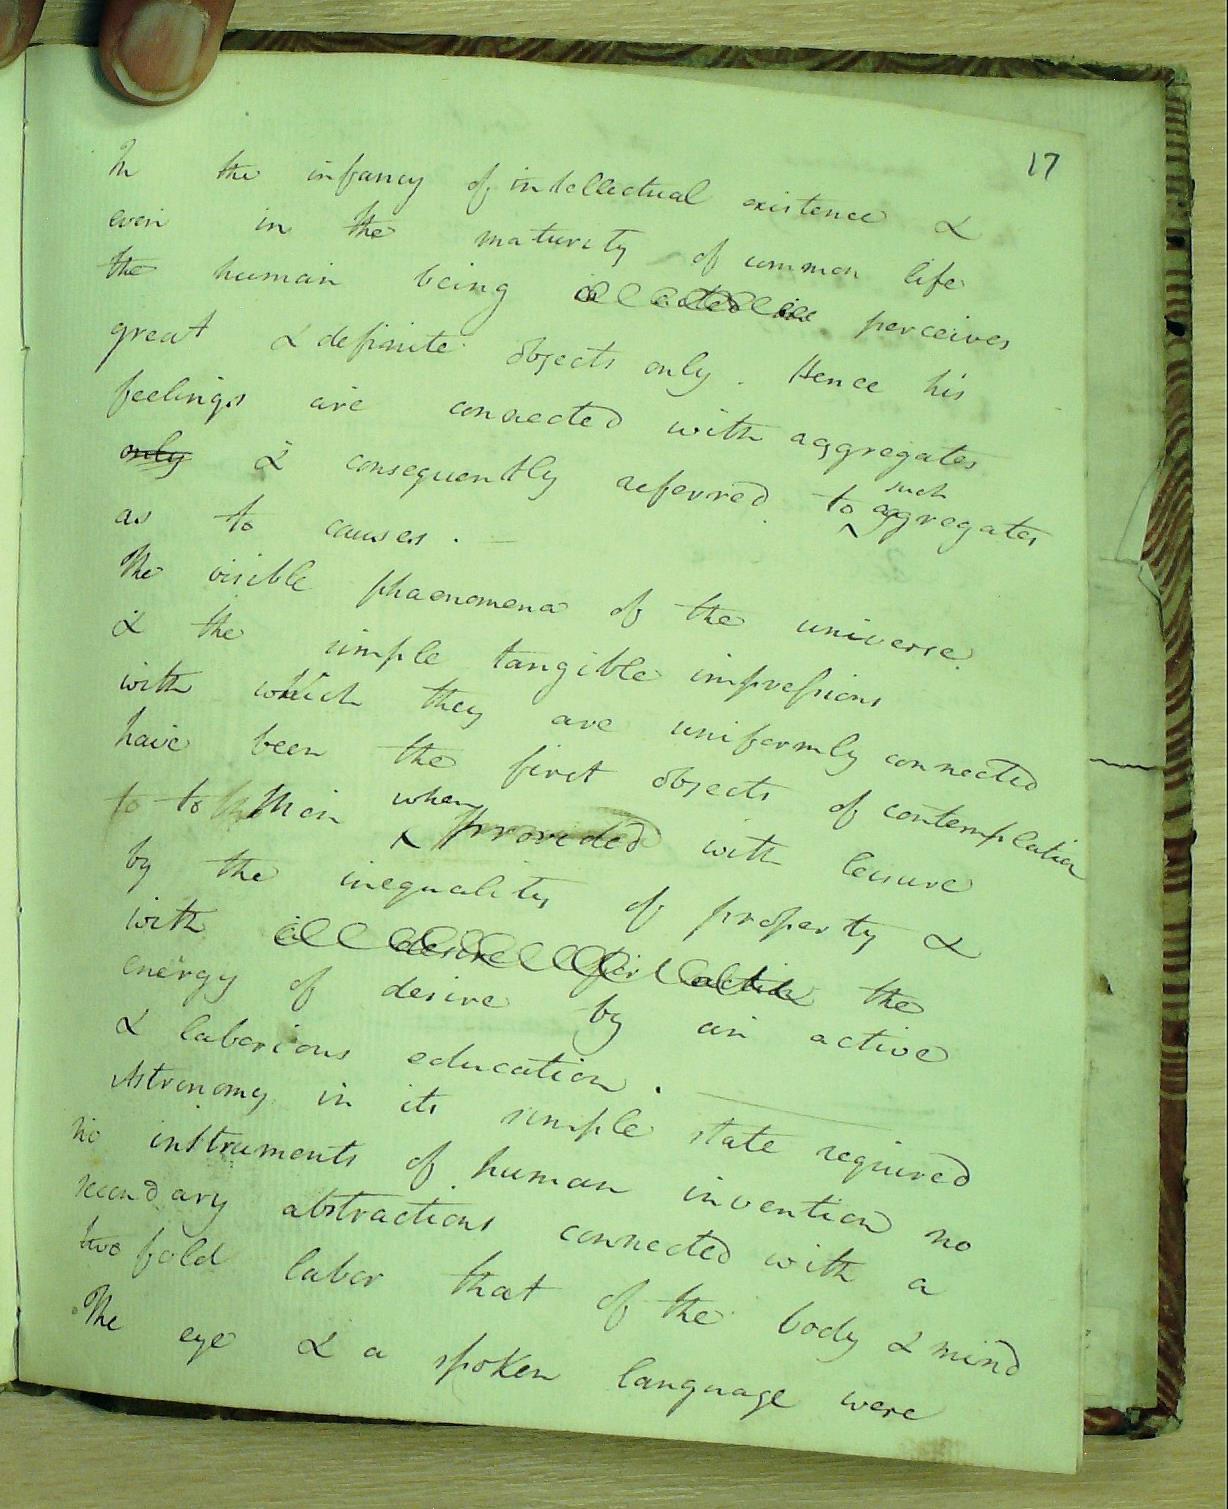 17
In the infancy of intellectual existence &
even in the maturity of common life
the human being is acted in perceives
great & definite objects only. Hence his
feelings are connected with aggregates
only & consequently referred to such aggregates
as to causes. —
The visible phaenomena of the universe.
& the simple tangible impressions
with which they are uniformly connected
have been the first objects of contemplation
to to Men when provided with leisure
by the inequality of property &
with a desire for action the
energy of desire by an active
& laborious education.
Astronomy in its simple state required
no instruments of human invention no
secondary abstractions connected with a
two fold labor that of the body & mind
The eye & a spoken language were